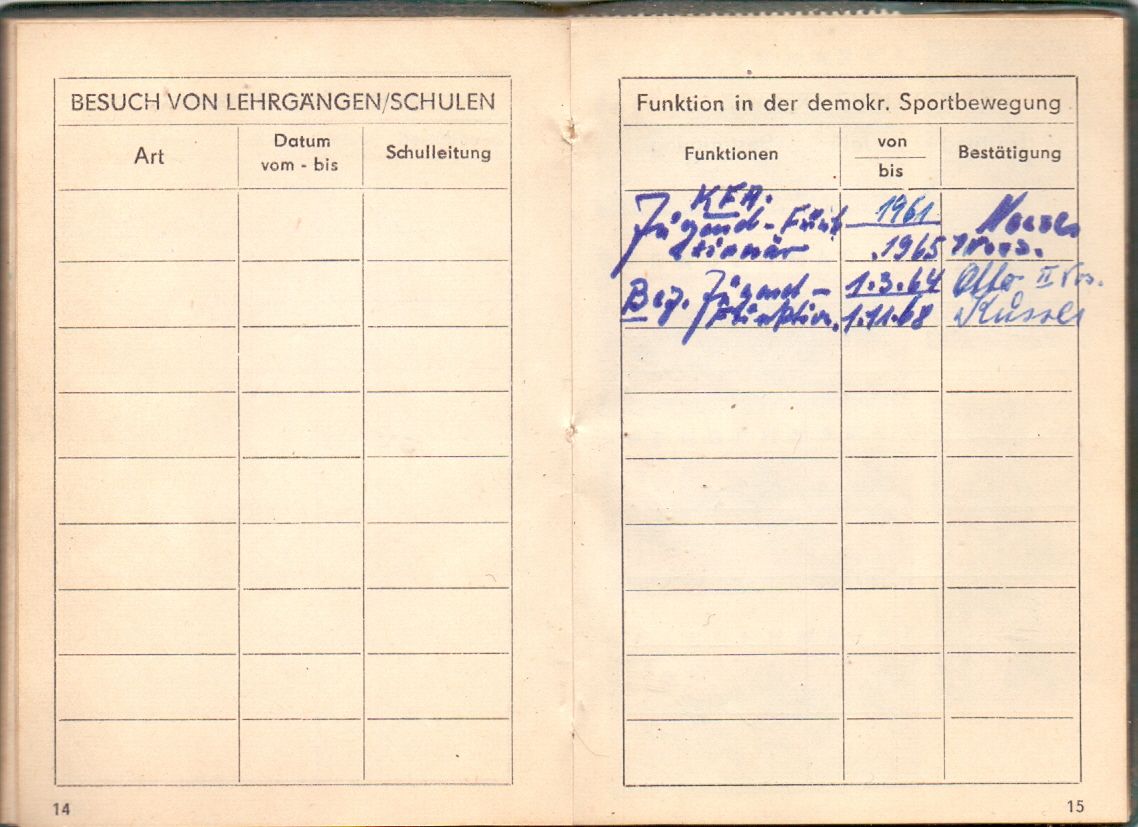 BESUCH VON LEHRGÄNGEN/SCHULEN
Art
Datum
vom - bis
Schulleitung
14
Funktion in der demokr. Sportbewegung
Funktionen
von
bis
Bestätigung
KFA.
Jugend-Funk
tionär
1961
1965
Vors.
Bez. Jugend-
Funktion.
1.3.64
1.11.68
Otto II Vors.
15